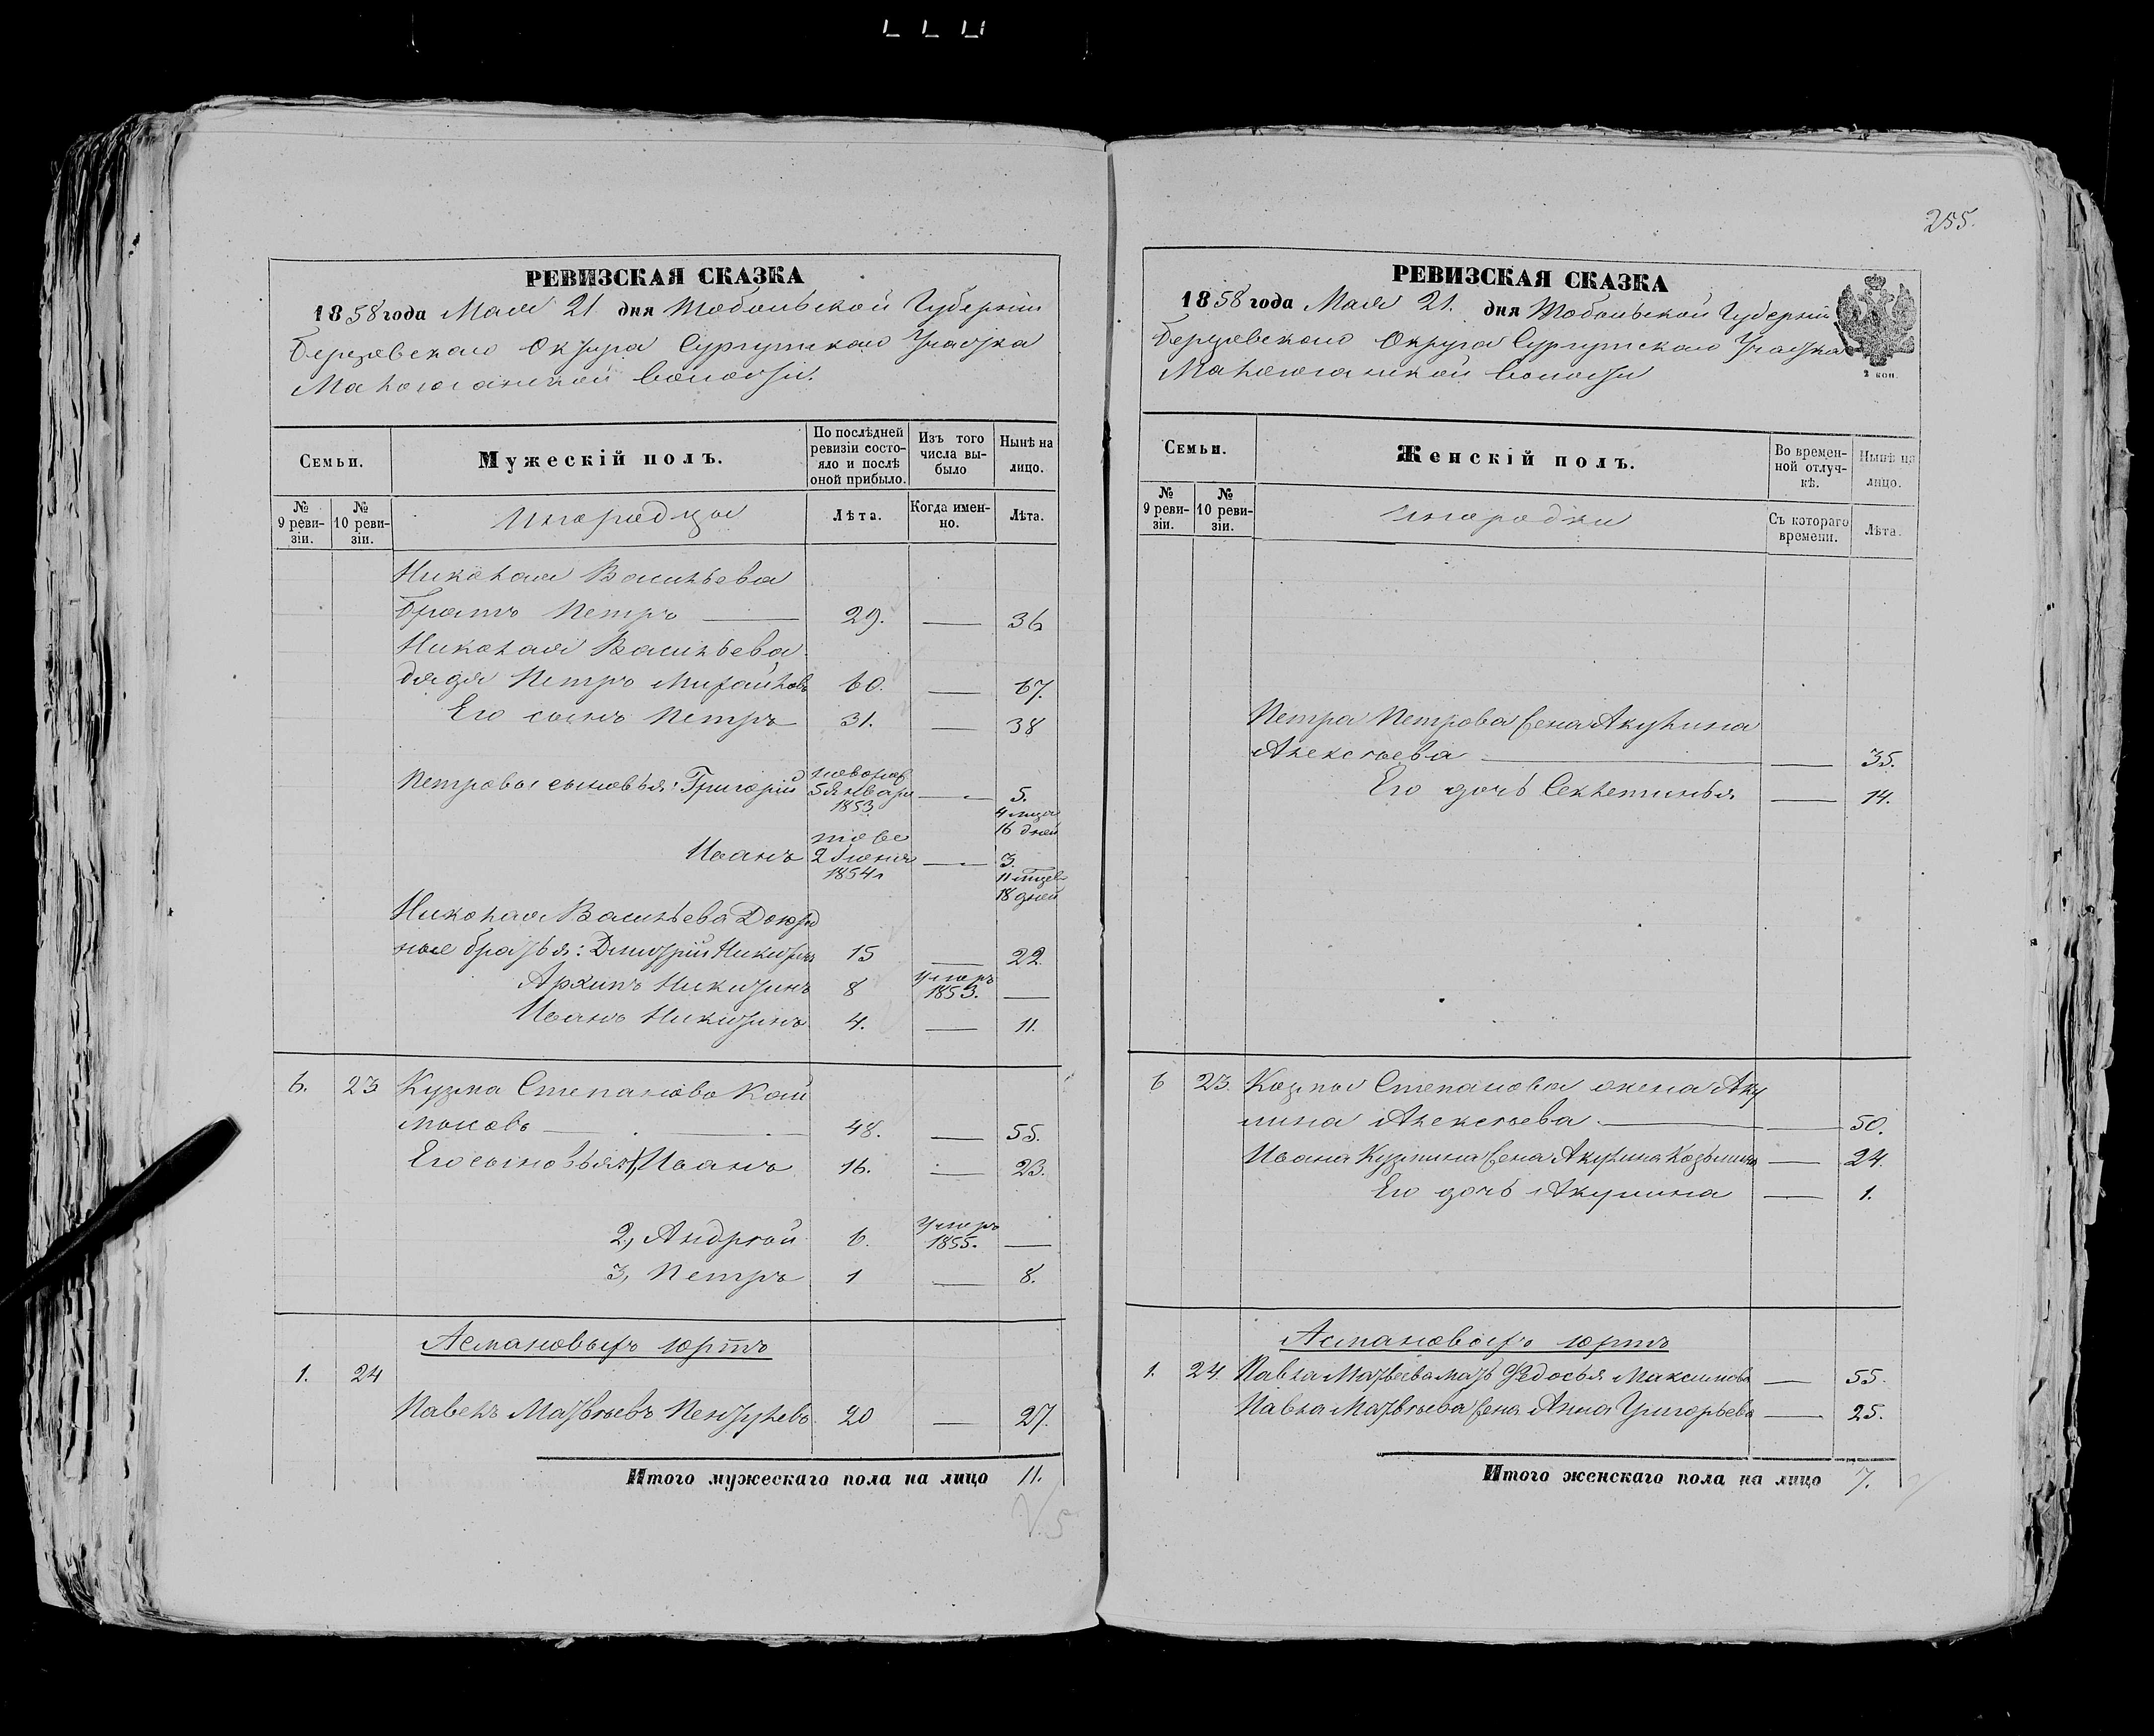 255.
РЕВИЗСКАЯ СКАЗКА
1858 года Мая 21 дня Тобольской Губерніи
Березовскаго Округа Сургутскаго Участка
Малоюганской волости.
Семьи.
Мужескій полъ.
По послѣдней ревизіи состо-
яло и послѣ оной прибыло.
Изъ того числа вы-
было
Нынѣ на лицо.
№ 9 реви-
зіи.
№ 10 реви-
зіи.
Инородцы
Лѣта.
Когда имен-
но.
Лѣта.
Николая Васильева
братъ Петръ — 29. — 36
Николая Васильева
дядя Петръ Михайловъ 60. — 67.
Его сынъ Петръ 31. — 38
Петровы сыновья: Григорій новорож 5 января 1853 — 5. 4 мѣсяца 16 дней
Иванъ тоже 2 Іюня 1854 г — 3. 11 мѣсяцевъ 18 дней
Николая Васильева Двоюрод
ные братья: Дмитрій Никитинъ 15 — 22.
Архипъ Никитинъ 8 умеръ 1853. —
Иванъ Никитинъ 4. — 11.
6. 23 Кузма Степановъ Кай
масовъ — 48. — 55.
Его сыновья: 1, Иванъ 16. — 23.
2, Андрей 6. умеръ 1855. —
3, Петръ 1 — 8.
1. 24
Павелъ Матвѣевъ 20 — 27.
Итого мужескаго пола на лицо 11.
РЕВИЗСКАЯ СКАЗКА
1858 года Мая 21. дня Тобольской Губерніи
Березовскаго Округа Сургутскаго Участка
Малоюганской волости
2 коп.
Семьи.
Женскій полъ.
Во времен-
ной отлуч-
кѣ.
Нынѣ на лицо.
№ 9 реви-
зіи.
№ 10 реви-
зіи.
Инородки
Съ котораго времени.
Лѣта.
Петра Петрова жена Акулина
Алексѣева — — 35.
Его дочь — 14.
6 23. Козмы Степанова жена Аку
лина Алексѣева — — 50.
Ивана Кузмина жена Акулина Козьмина — 24.
Его дочь Акулина — 1.
1. 24. Павла Матвѣева мать Федосья Максимова — 55.
Павла Матвѣева жена Анна Григорьева — 25.
Итого женскаго пола на лицо 7.